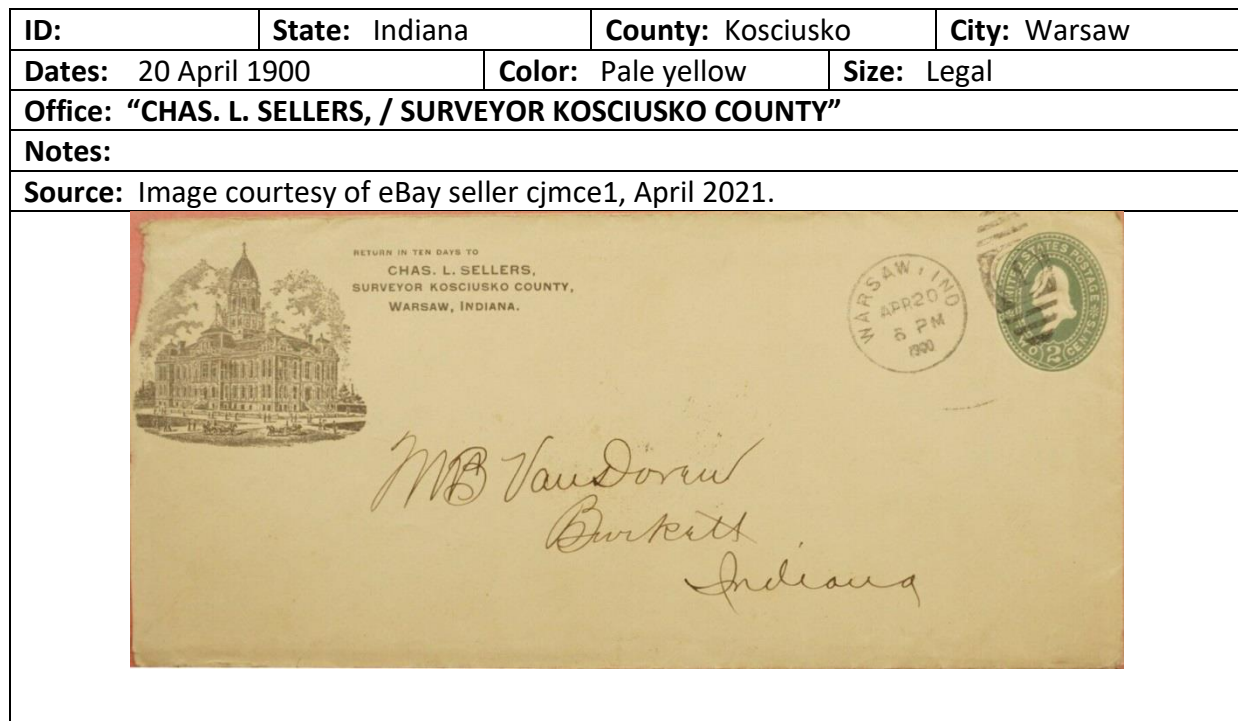 ID: State: Indiana County: Kosciusko City: Warsaw
Dates: 20 April 1900 Color: Pale yellow Size: Legal
Office: “CHAS. L. SELLERS, / SURVEYOR KOSCIUSKO COUNTY”
Notes:
Source: Image courtesy of eBay seller cjmce1, April 2021.
RETURN IN TEN DAYS TO
CHAS. L. SELLERS,
SURVEYOR KOSCIUSKO COUNTY,
WARSAW, INDIANA.
WARSAW IND
APR 20
6 PM
1900
UNITED STATES POSTAGE
TWO 2 CENTS
MB VanDoren
Burkett
Indiana